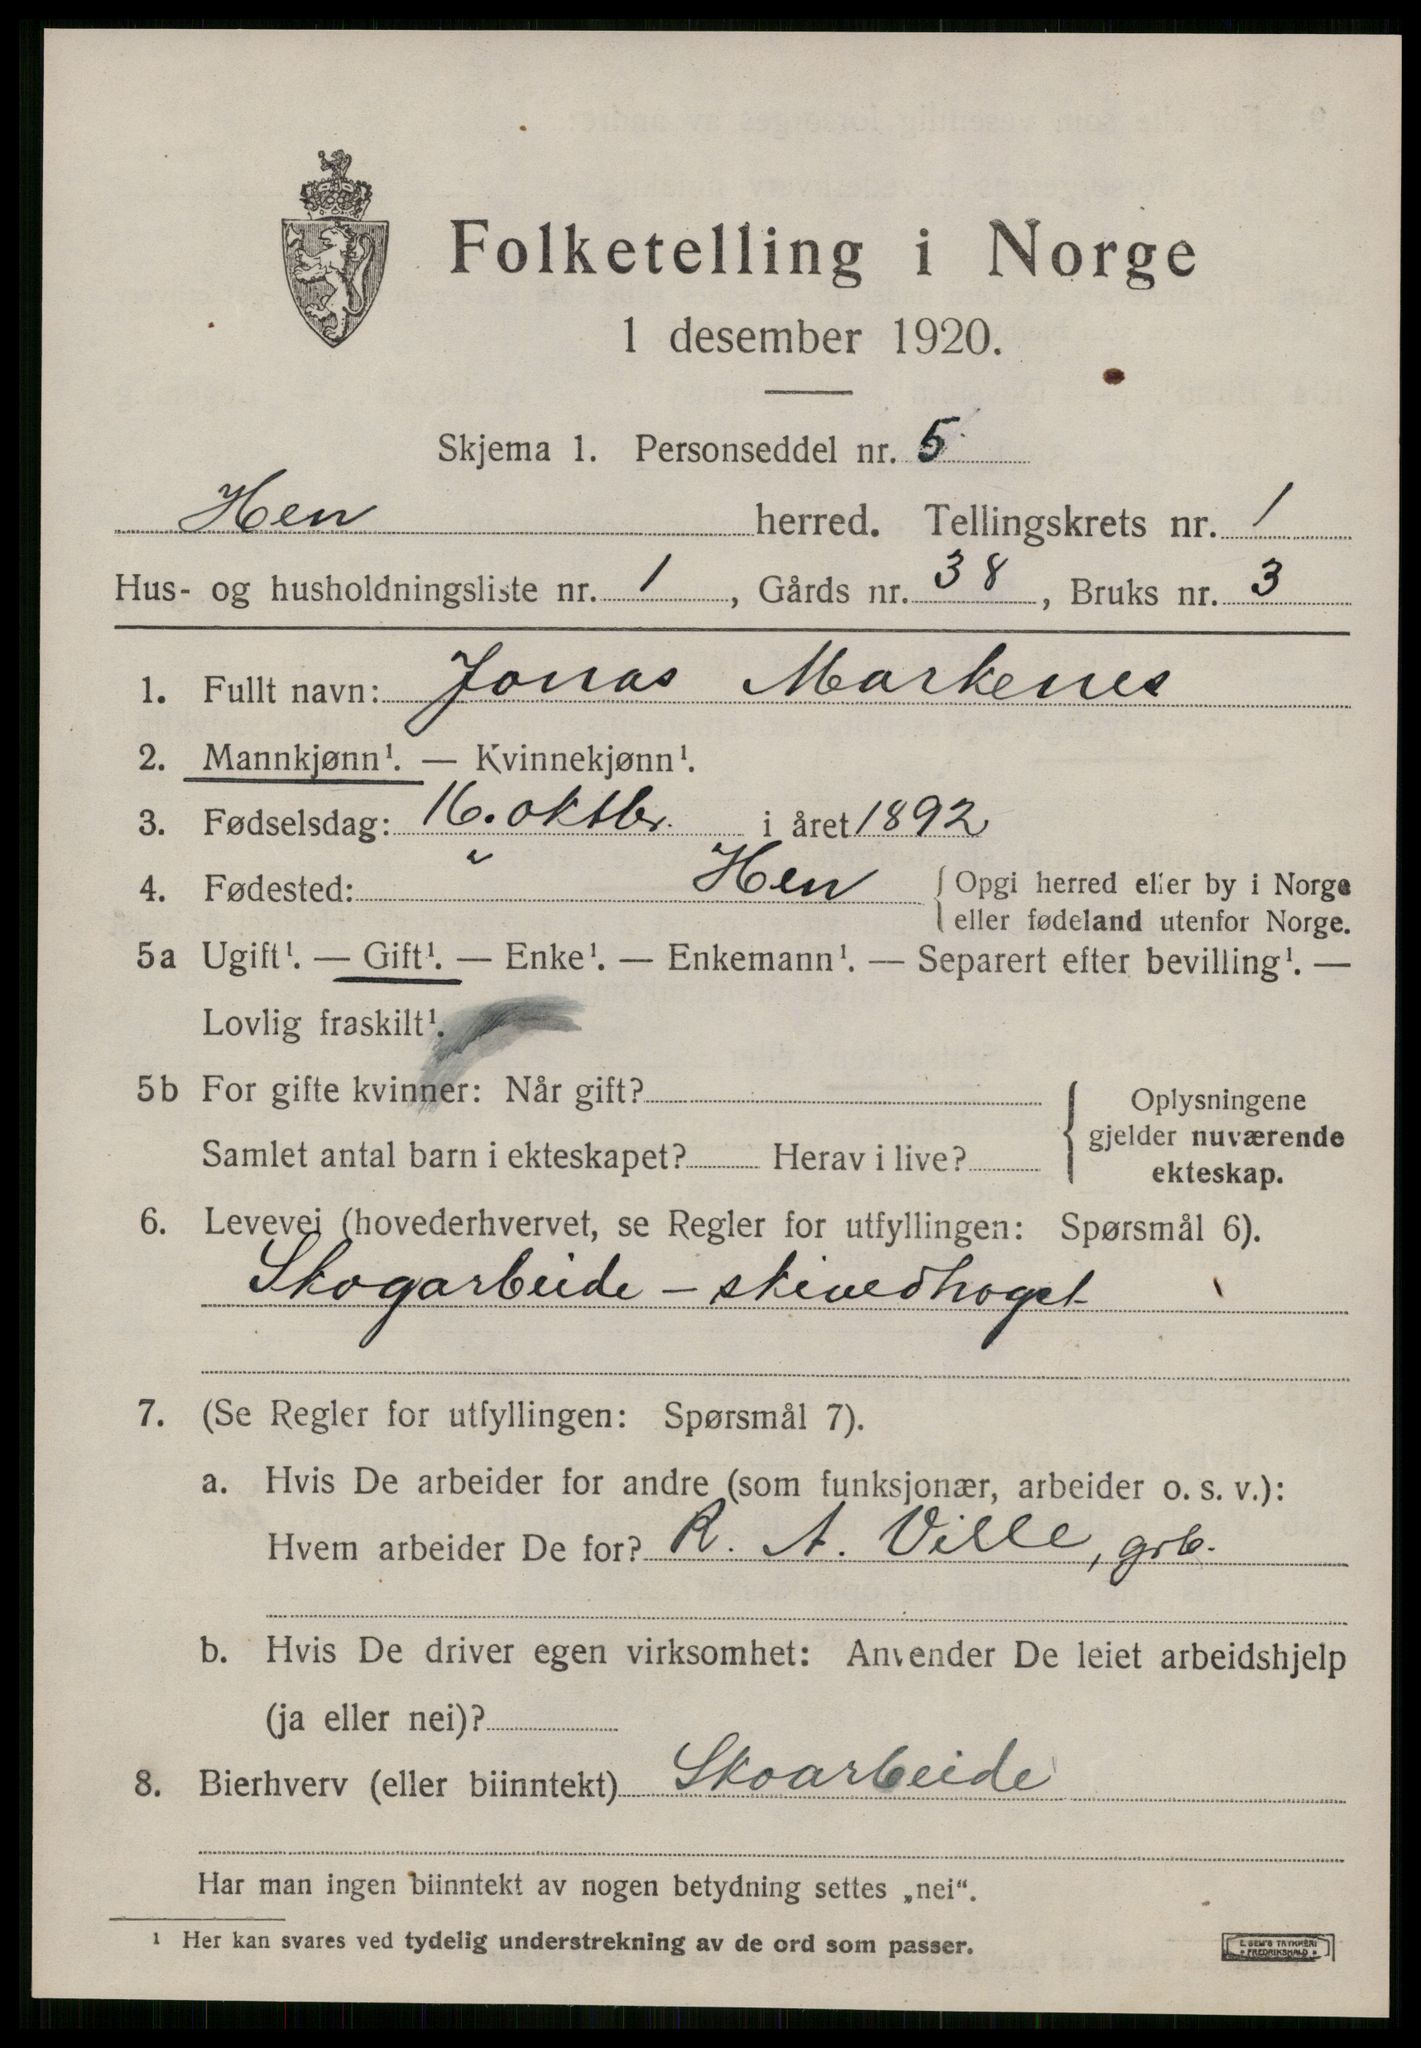 Folketelling i Norge
1 desember 1920.
Skjema 1. Personseddel nr. 5
Hen herred. Tellingskrets nr. 1
Hus- og husholdningsliste nr. 1, Gårds nr. 38, Bruks nr. 3
1. Fullt navn: Jonas Markenes
2. Mannkjønn¹. — Kvinnekjønn¹.
3. Fødselsdag: 16. oktbr. i året 1892
4. Fødested: Hen { Opgi herred eller by i Norge
eller fødeland utenfor Norge.
5a Ugift¹. — Gift¹. — Enke¹. — Enkemann¹. — Separert efter bevilling¹. —
Lovlig fraskilt¹.
5b For gifte kvinner: Når gift?
Samlet antal barn i ekteskapet? Herav i live?
{ Oplysningene
gjelder nuværende
ekteskap.
6. Levevei (hovederhvervet, se Regler for utfyllingen: Spørsmål 6).
Skogarbeide - skivedhogst
7. (Se Regler for utfyllingen: Spørsmål 7).
a. Hvis De arbeider for andre (som funksjonær, arbeider o. s. v.):
Hvem arbeider De for? R. A. Ville, grb.
b. Hvis De driver egen virksomhet: Anvender De leiet arbeidshjelp
(ja eller nei)?
8. Bierhverv (eller biinntekt) Skoarbeide
Har man ingen biinntekt av nogen betydning settes „nei“.
¹ Her kan svares ved tydelig understrekning av de ord som passer.
E. SEM'S TRYKKERI
FREDRIKSHALD